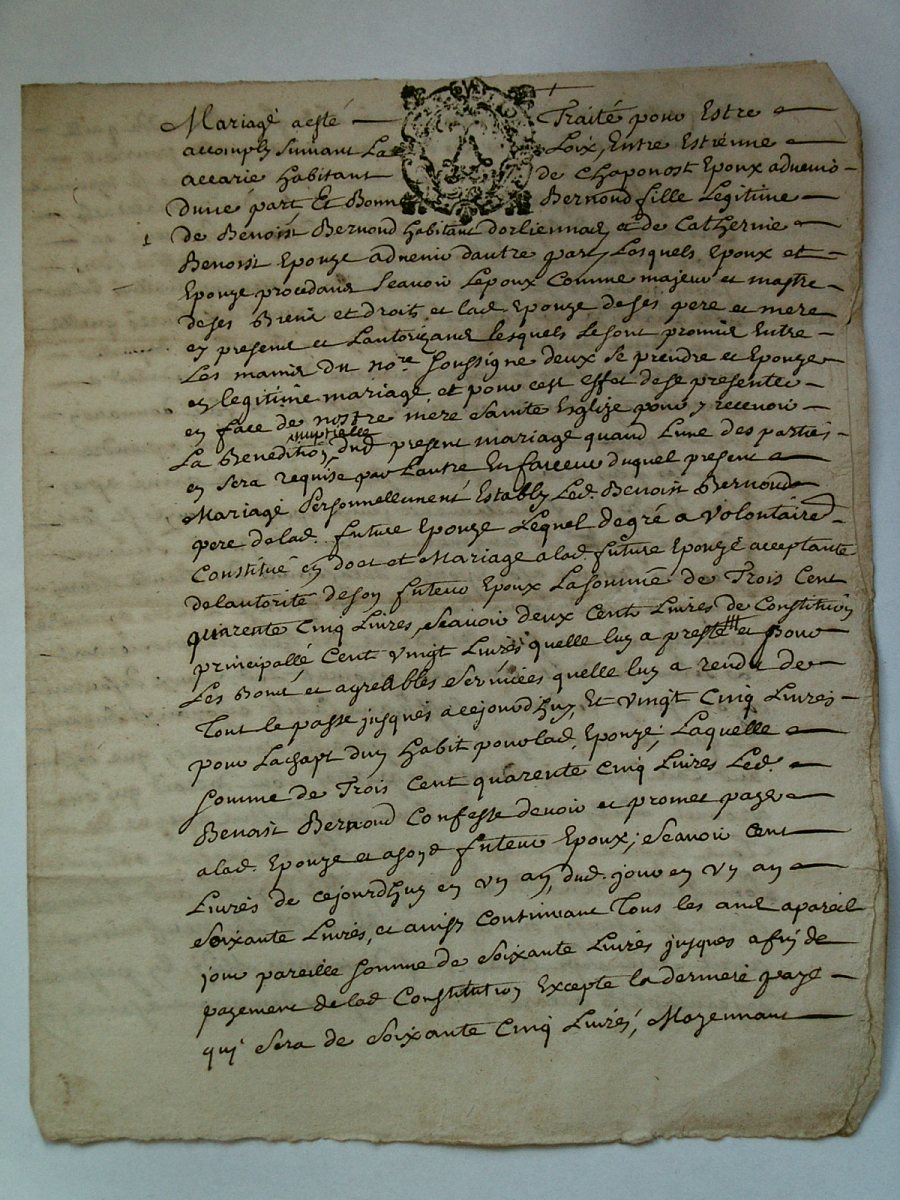 Mariage a esté Traité pour Estre
accomply suivant La Loix, Entre Estienne
accarie habitant de Chaponost Epoux advenir
d'une part, Et Bonne Bernond fille Legitime
de Benoist Bernond habitant dorliennas et de Catherine
Benoist Epouze advenir dautre part, Lesquels Epoux et
Epouze procedans scavoir Lepoux Comme majeur et maistre
de ses Biens et droits et lad. Epouze de ses pere et mere
cy present et Lautorizans lesquels se sont promis Entre
Les mains du nore. soussigne deux se prendre et Epouzer
en legitime mariage, et pour cest effet de se presenter
en face de nostre mere sainte Eglize pour y recevoir
La Benediction nuptialle dud present mariage quand Lune des parties
en sera requise par Lautre En faveur duquel present
Mariage Personnellement Estably Led. Benoist Bernond
pere de lad. future Epouze Lequel de gré a Volontaire
Constitué en doct et Mariage a lad. future Epouze acceptante
de lautorité de son futeur Epoux La somme de Trois Cent
quarente Cinq Livres, scavoir deux Cent Livres de Constitution
principalle, Cent vingt Livres quelle luy a presté et pour
Les Bons et agreables services quelle luy a rendu de
Tout le passe jusques a cejourdhuy, Et vingt Cinq Livres
pour Lachapt dun habit pour lad. Epouze, Laquelle
somme de Trois Cent quarente Cinq Livres Led.
Benoist Bernond Confesse devoir et promet payer
a lad. Epouze et a sond futeur Epoux; scavoir Cent
Livres de cejourdhuy en un an, dud. jour en un an
soixante Livres, et ainsy Continuant Tous les ans a pareil
jour pareille somme de soixante Livres jusques a fin de
payement de lad Constitution Excepte la derniere paye
qui sera de soixante Cinq Livres, Moyennant